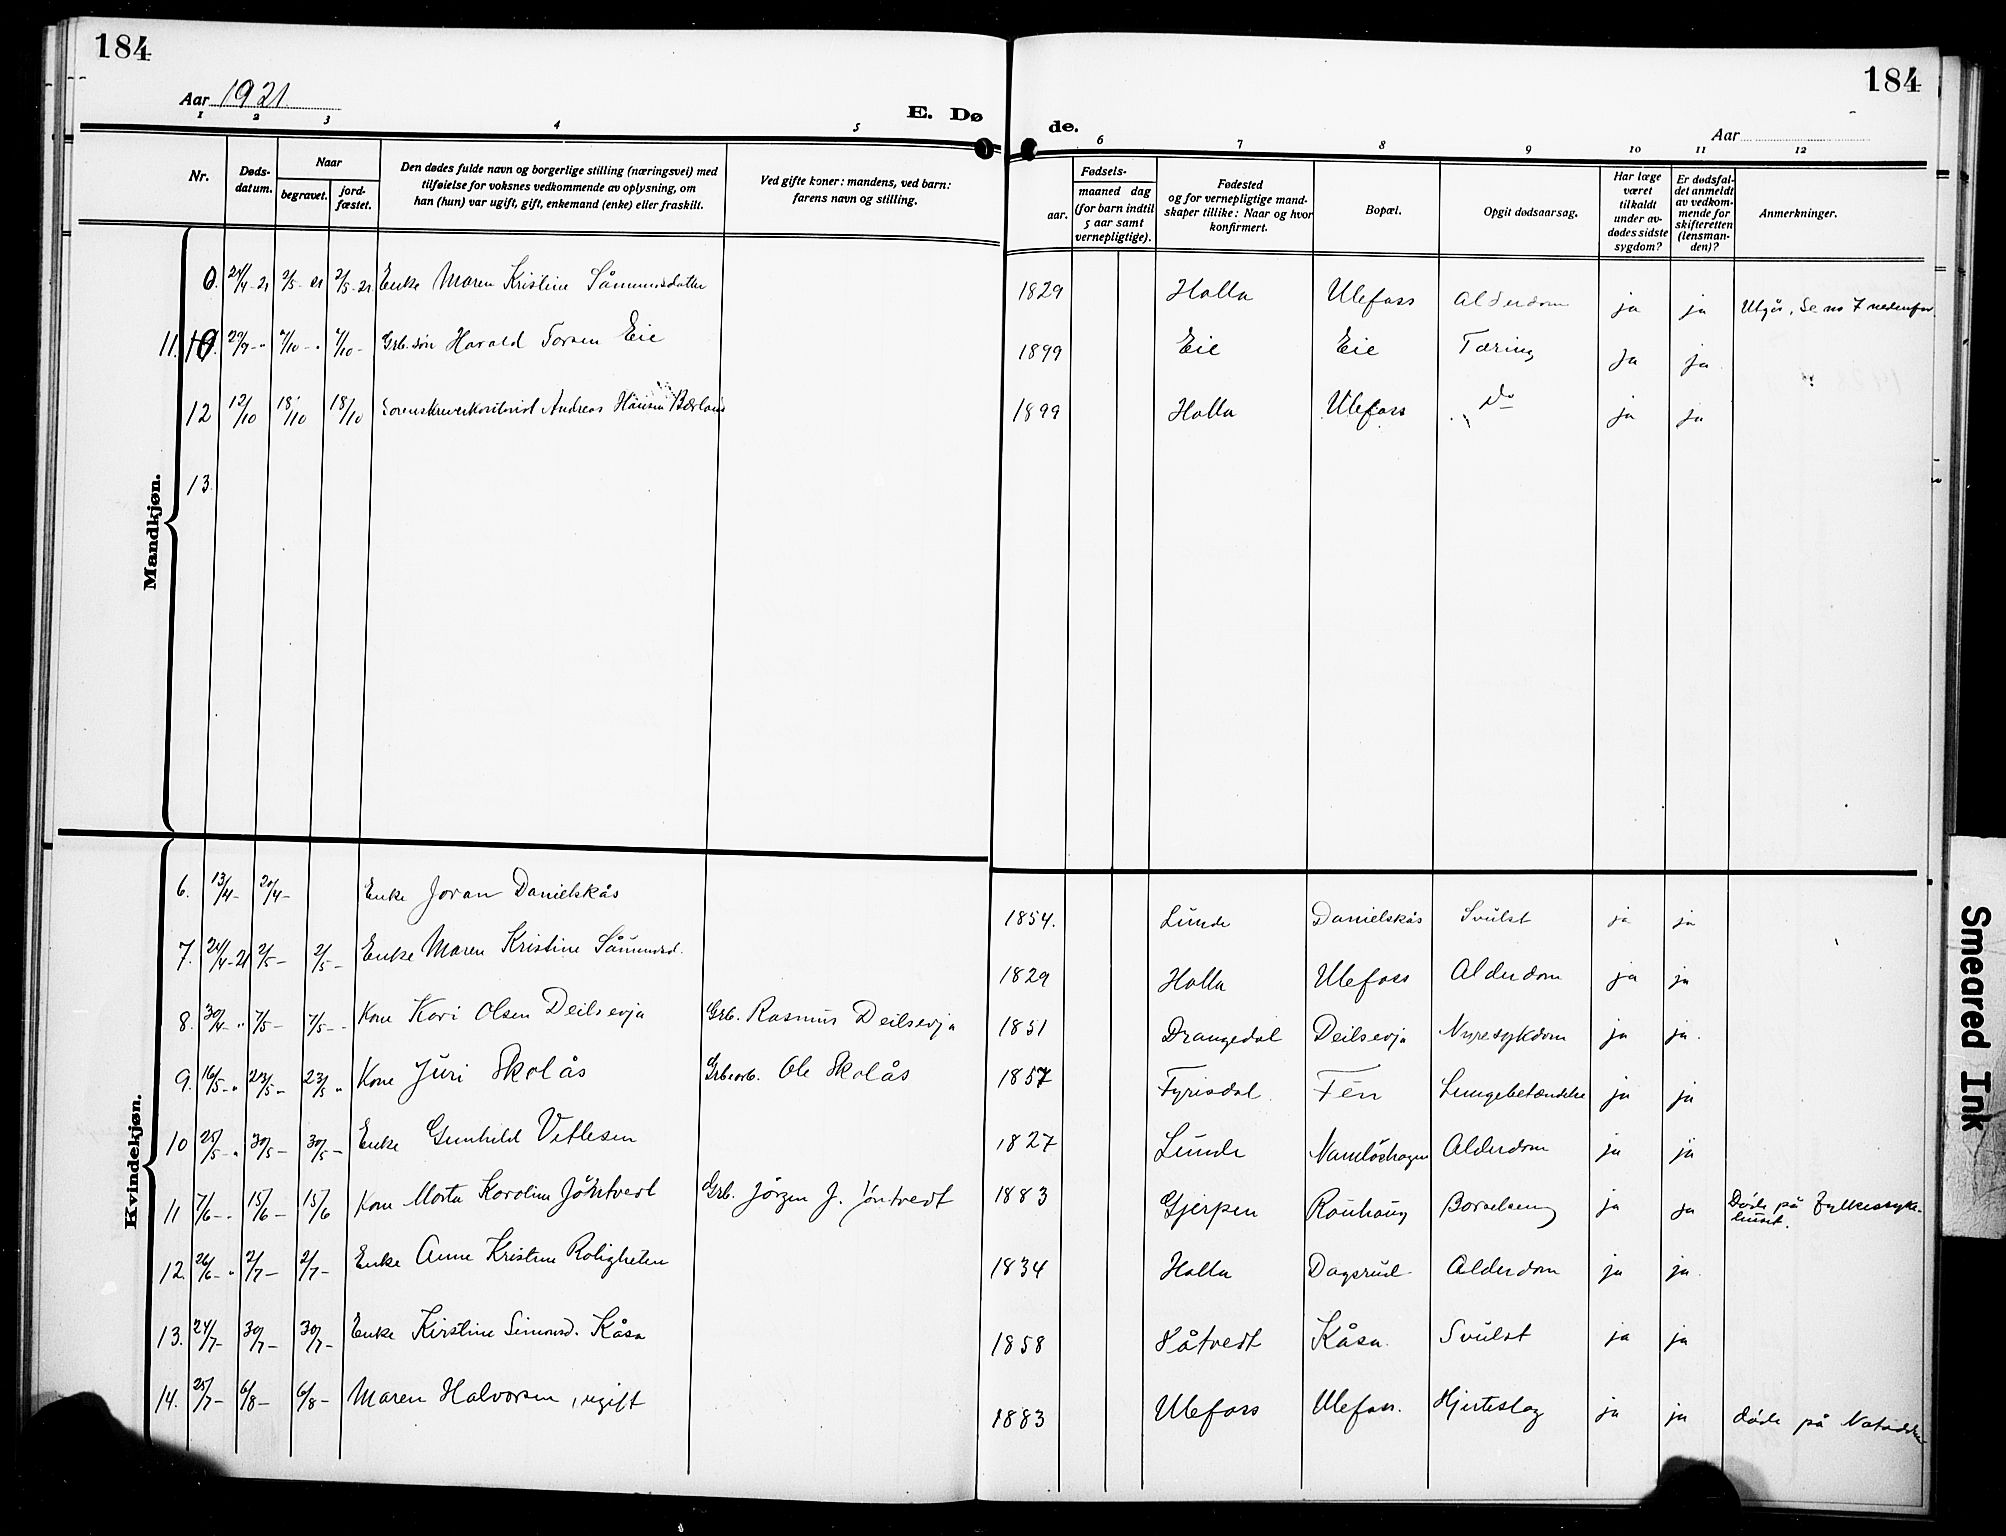 184
184
Aar 1921
E. Døde.
Aar
1 2 3 4 5 6 7 8 9 10 11 12
Nr.
Døds-
datum.
Naar
begravet.
jord-
fæstet.
Den dødes fulde navn og borgerlige stilling (næringsvei) med
tilføielse for voksnes vedkommende av oplysning, om
han (hun) var ugift, gift, enkemand (enke) eller fraskilt.
Ved gifte koner: mandens, ved barn:
farens navn og stilling.
Fødsels-
aar.
maaned dag
(for barn indtil
5 aar samt
vernepligtige).
Fødested
og for vernepligtige mand-
skaper tillike: Naar og hvor
konfirmert.
Bopæl.
Opgit dødsaarsag.
Har læge
været
tilkaldt
under av-
dødes sidste
sygdom?
Er dødsfal-
det anmeldt
av vedkom-
mende for
skifteretten
(lensman-
den)?
Anmerkninger.
Mandkjøn.
0. 24/4-21 2/5-21 2/5-21 Enke Maren Kristine Såmunsdatter 1829 Holla Ulefoss Alderdom ja ja Utgår, se no 7 nedenfor
11. 10. 29/9-" 7/10-" 7/10- Grb. søn Harald Torsen Eie 1899 Eie Eie Tæring Ja ja.
12 12/10 18/10 18/10 Andreas Hansen 1899 Holla Ulefoss Do ja ja
13.
Kvindekjøn.
6. 13/4- 20/4- Enke Joran Danielskås 1854. Lunde Danielskås Svulst ja ja
7. 24/4-21 2/5- 2/5- Enke Maren Kristine Såmunsd. 1829 Holla Ulefoss Alderdom ja ja
8. 30/4-" 7/5- 7/5- Kone Kari Olsen Deilsevja Grb. Rasmus Deilsevja 1851 Drangedal Deilsevja Nyresykdom ja ja.
9. 16/5-" 23/5- 23/5" Kone Juri Skolås Grbearb. Ole Skolås 1857 Fyrisdal. Fen Lungebetændelse ja ja
10 25/5-" 30/5- 30/5- Enke Gunhild Vetlesen 1827 Lunde Namløshagen Alderdom ja ja
11 7/6-" 15/6- 15/6 Kone Marta Karoline Jöntvedt Grb. Jörgen J. Jöntvedt 1883 Gjerpen Rauhaug Barselseng ja ja Døde på Fylkessyke-
huset.
12. 26/6-" 2/7- 2/7- Enke Anne Kristine Roligheten 1834 Holla Dagsrud Alderdom ja ja.
13. 24/7- 30/7- 30/7- Enke Kirstine Simonsd. Kåsa 1858 Kåsa. Svulst ja ja
14. 25/7- 6/8- 6/8- Maren Halvorsen, ugift 1883 Ulefoss Ulefoss. Hjerteslag ja ja døde på Notodden
Smeared Ink